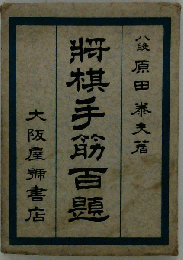 八段 原田泰夫著
将棋手筋百題
大阪屋號書店